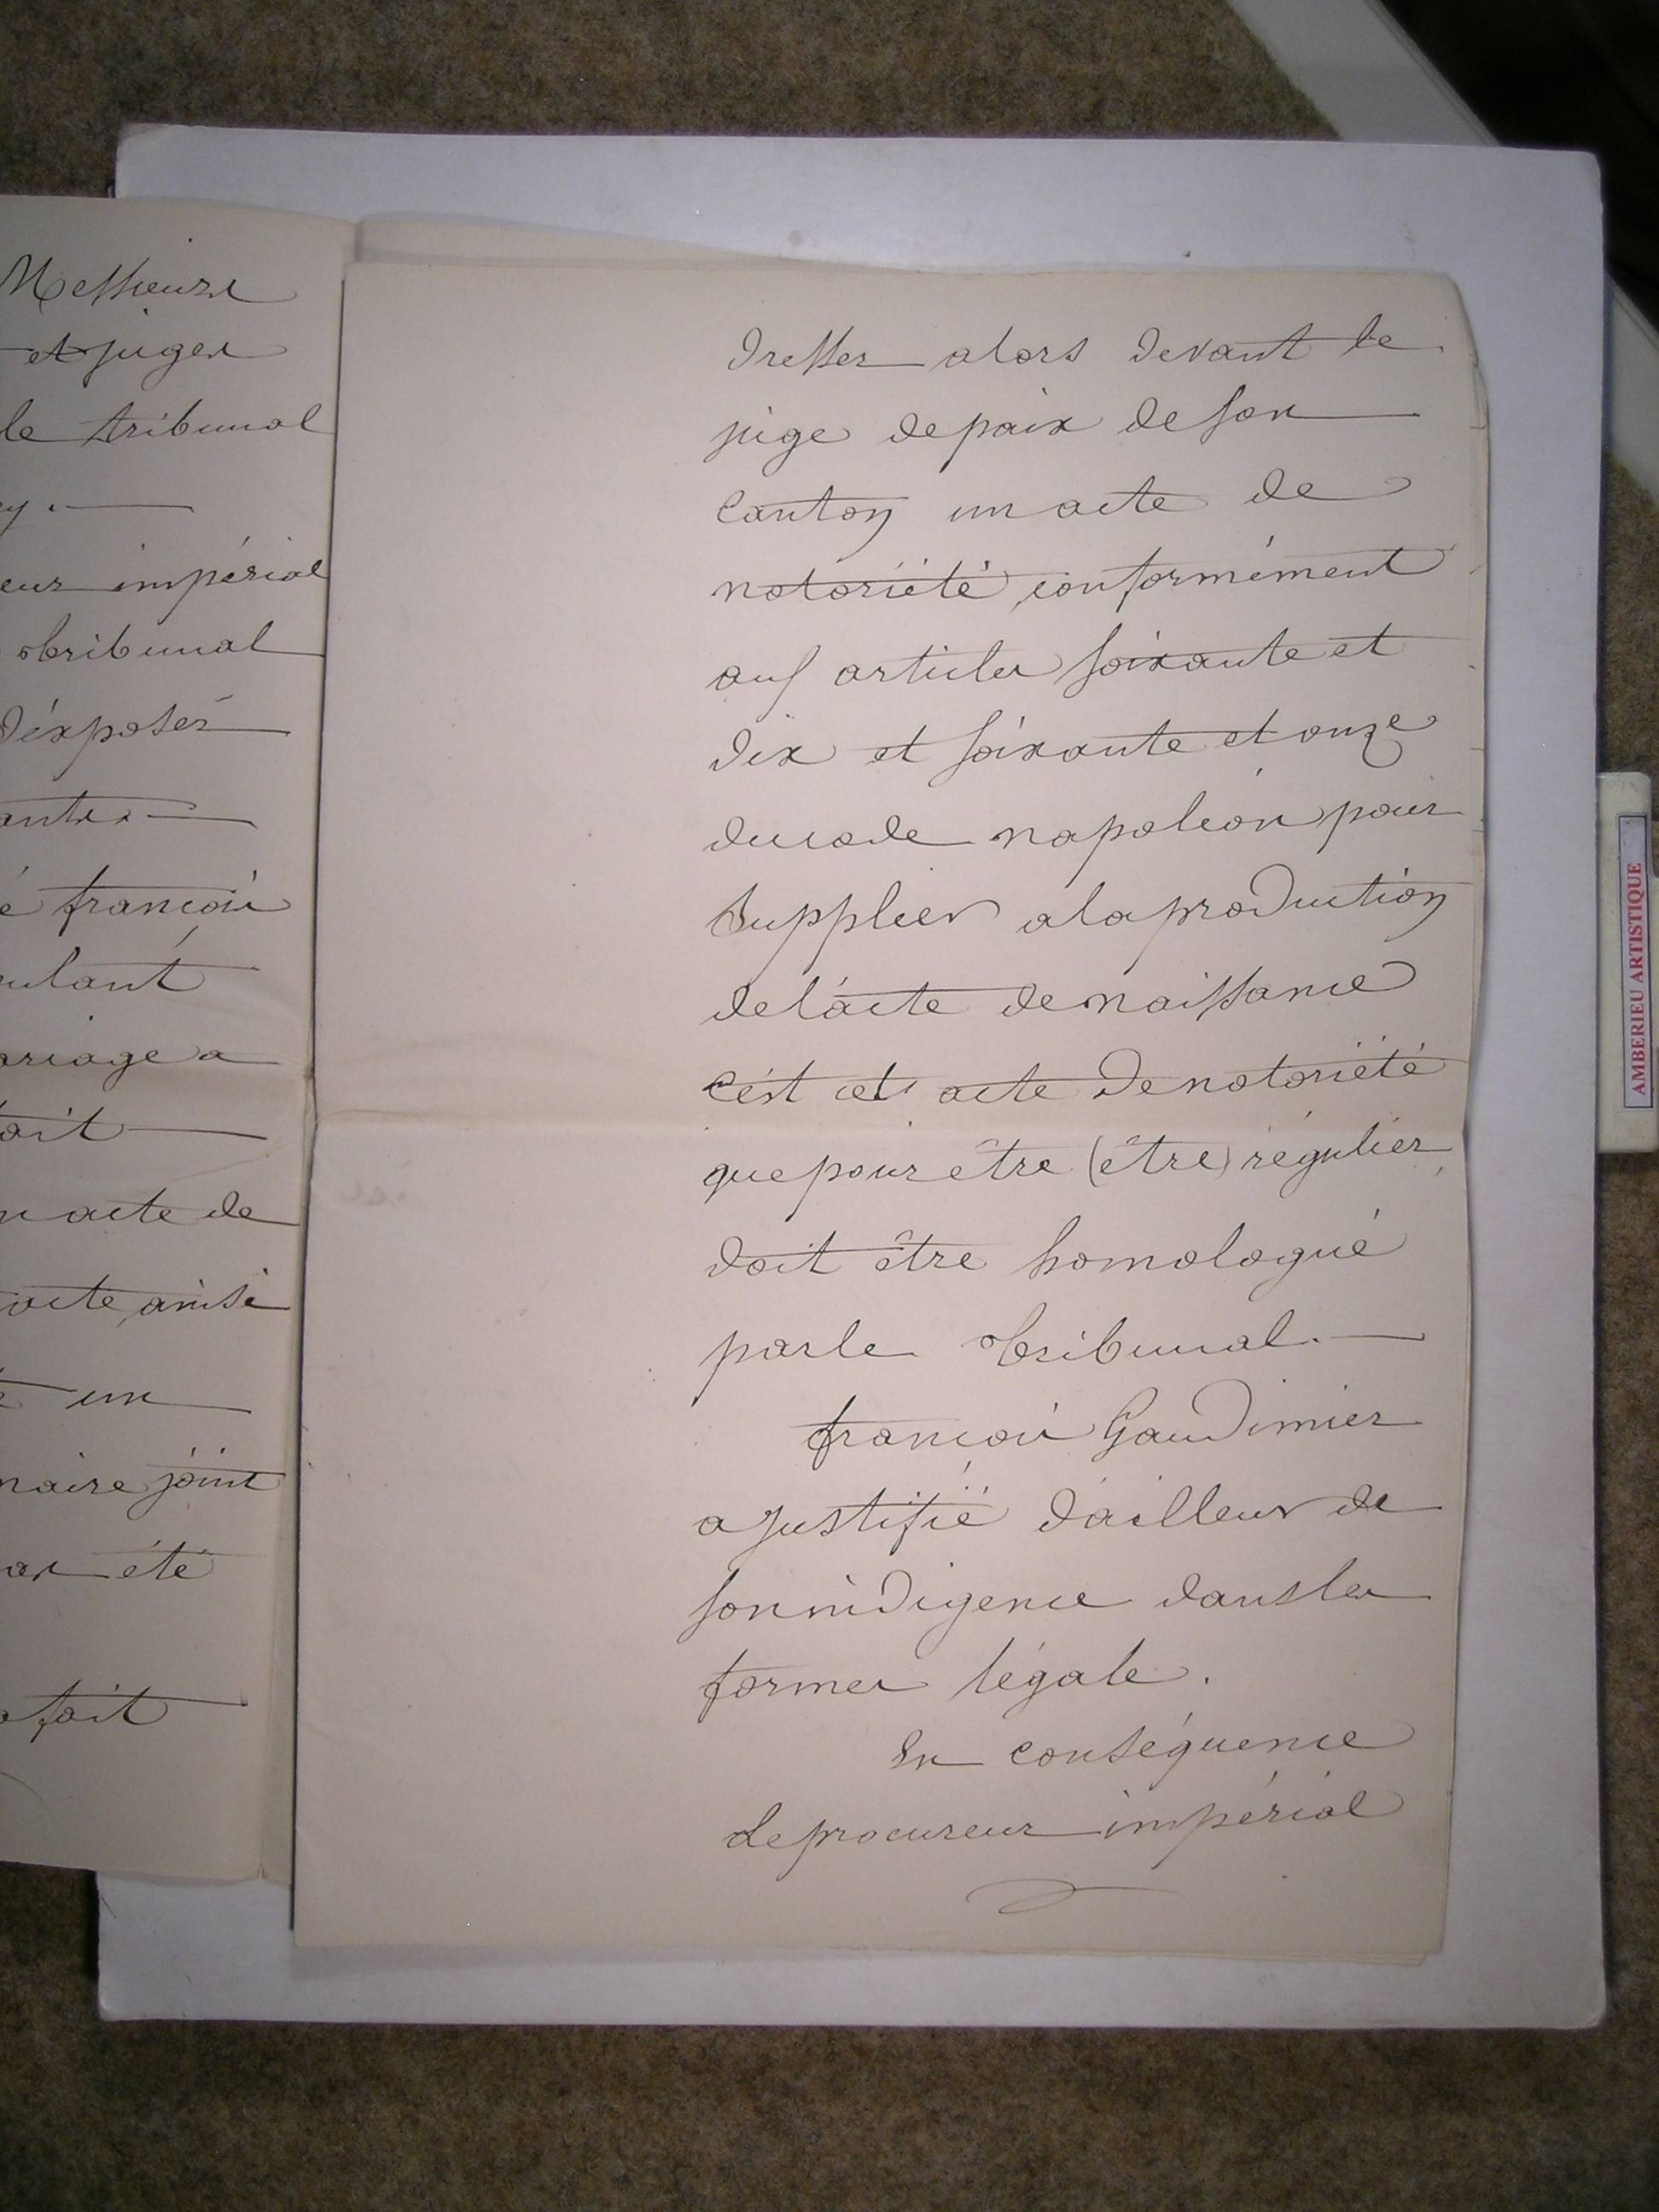 Messieurs
et juges
le tribunal
impérial
tribunal
d'éxposer
françois
ariage a
acte de
acte, ainsi
un
joint
été
fait
dresser alors devant le
juge de paix de son
Canton un acte de
notoriété, conformément
aux articles soixante et
dix et soixante et onze
du code napoléon pour
Supplier a la production
de l'acte de naissance
C'est cet acte de notoriété
que pour être (être) régulier,
doit être homologué
par le Tribunal.
françois Gaudimier
a justifié d'ailleur de
son indigence dans les
formes légale.
En conséquence
Le procureur impérial
AMBERIEU ARTISTIQUE